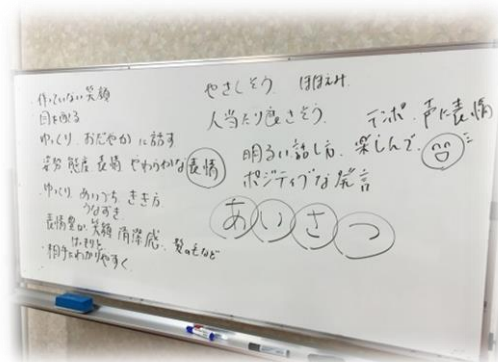 作っていない笑顔
目を見る
ゆっくり、おだやかに話す
姿勢 態度 表情 やわらかな表情
・ゆっくり あいづち きき方
うなずき
表情豊か 笑顔 清潔感、髪の毛など
はっきりと
・相手にわかりやすく
やさしそう ほほえみ
人当たり良さそう、
テンポ、声に表情
明るい話し方、楽しんで、
ポジティブな発言
あいさつ